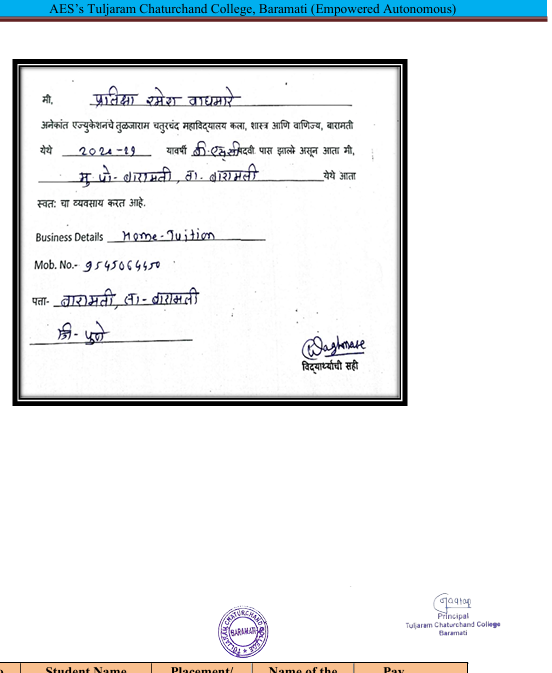 AES's Tuljaram Chaturchand College, Baramati (Empowered Autonomous)
मी, प्रतिक्षा रमेश वाघमारे
अनेकांत एज्युकेशनचे तुळजाराम चतुरचंद महाविद्यालय कला, शास्त्र आणि वाणिज्य, बारामती
येथे यावर्षी बी.एस्सी पदवी पास झाले असून आता मी,
मु पो- बारामती, ता. बारामती येथे आता
स्वत: चा व्यवसाय करत आहे.
Business Details Home-Tuition
Mob. No.- 9545064450
पत्ता- बारामती, ता- बारामती
जि- पुणे
Waghmare
विद्यार्थ्याची सही
Principal
Tuljaram Chaturchand College
Baramati
TULJARAM CHATURCHAND COLLEGE
BARAMATI
Student Name Placement/ Name of the Pay